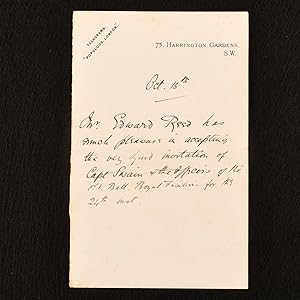 TELEGRAMS,
"POPULOUS, LONDON."
75, HARRINGTON GARDENS,
S.W.
Oct. 18th
Mr Edward Reed has
much pleasure in accepting
the very kind invitation of
Capt Swain & the Officers of the
Batt. Royal Fusiliers for the
24th inst.